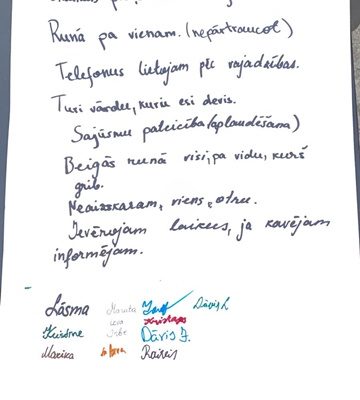 Runā pa vienam. (nepārtraucot)
Telefonus lietojam pēc vajadzības.
Turi vārdu, kuru esi devis.
Sajūsmu pateicība (aplaudēšana)
Beigās runā visi, pa vidu, kurš
grib.
Neaizskaram, viens, otru.
Ievērojam laikus, ja kavējam
informējam.
Lāsma Marita Dāvis L
Ieva Kristaps
Kristīne Dāvis J.
Marika Raivis